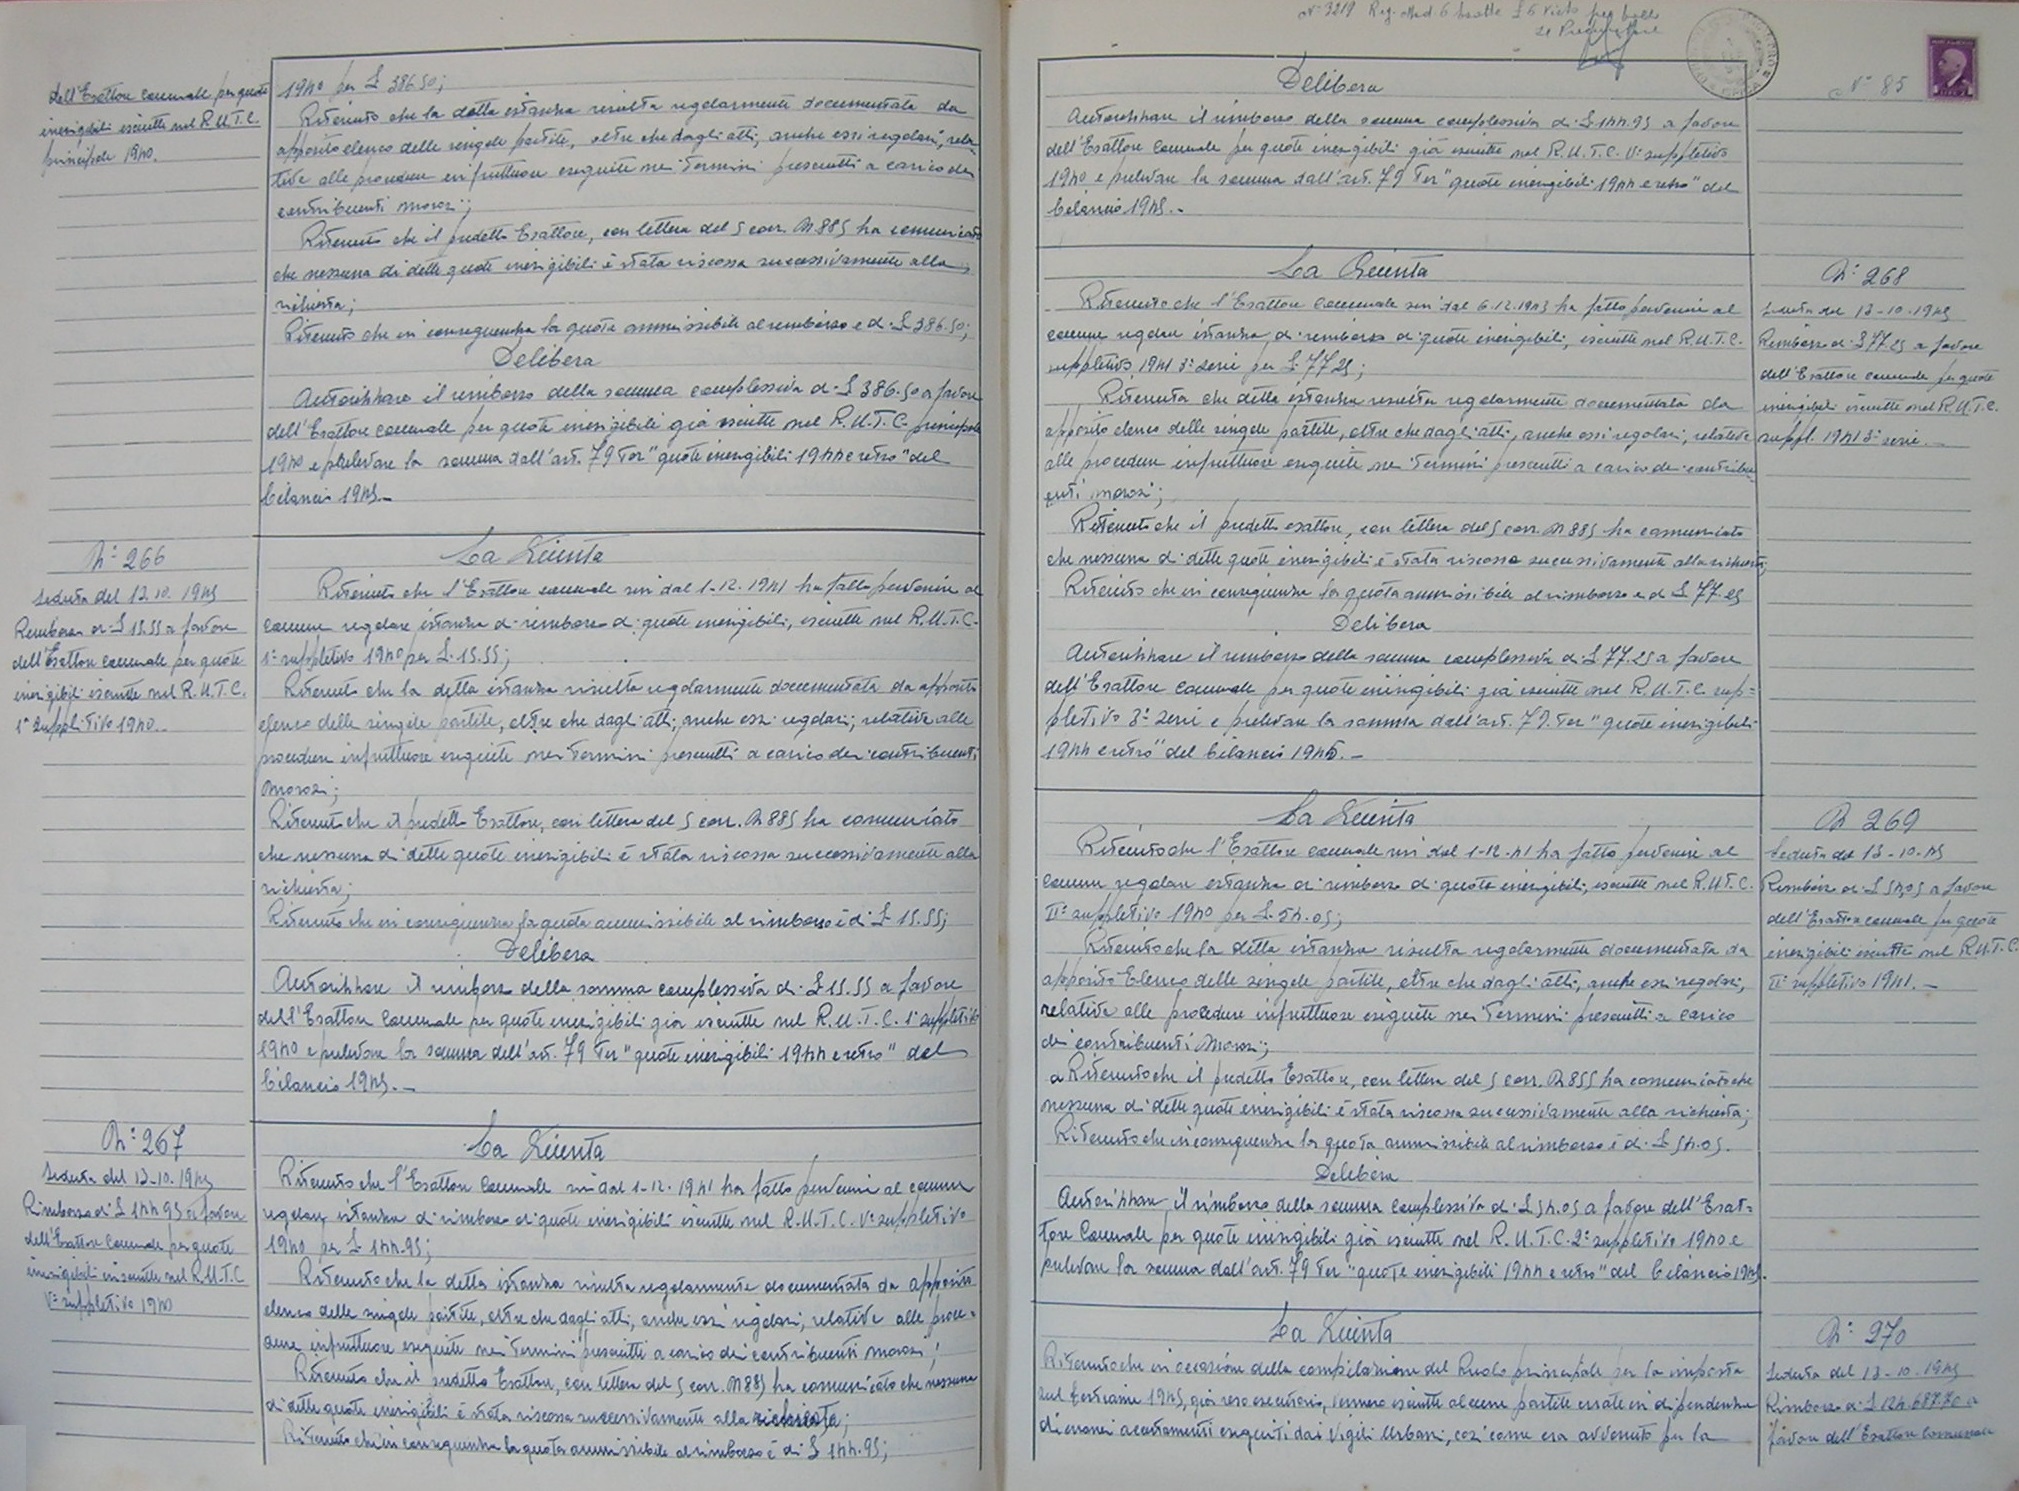 dell'Esattore comunale per quote
inesigibili iscritte nel R.U.T.C.
principale 1940.
1940 per £ 386.50;
Ritenuto che la detta istanza risulta regolarmente documentata da
apposito elenco delle singole partite, oltre che dagli atti, anche essi regolari, rela-
tive alle procedure infruttuose eseguite nei termini prescritti a carico dei
contribuenti morosi;
Ritenuto che il predetto Esattore, con lettera del 5 corr. N 885 ha comunicato
che nessuna di dette quote inesigibili è stata riscossa successivamente alla
richiesta;
Ritenuto che in conseguenza la quota ammissibile al rimborso è di £ 386.50;
Delibera
Autorizzare il rimborso della somma complessiva di £ 386.50 a favore
dell'Esattore comunale per quote inesigibili già iscritte nel R.U.T.C. principale
1940 e prelevare la somma dall'art. 79 Ter "quote inesigibili 1944 e retro" del
bilancio 1945.-
N° 266
Seduta del 13.10.1945
Rimborso di £ 15.55 a favore
dell'Esattore comunale per quote
inesigibili iscritte nel R.U.T.C.
1° suppletivo 1940.-
La Giunta
Ritenuto che l'Esattore comunale sin dal 1-12.1941 ha fatto pervenire al
comune regolare istanza di rimborso di quote inesigibili, iscritte nel R.U.T.C.
1° suppletivo 1940 per £. 15.55;
Ritenuto che la detta istanza risulta regolarmente documentata da apposito
elenco delle singole partite, oltre che dagli atti, anche essi regolari, relative alle
procedure infruttuose eseguite nei termini prescritti a carico dei contribuenti
morosi;
Ritenuto che il predetto Esattore, con lettera del 5 corr. N 885 ha comunicato
che nessuna di dette quote inesigibili è stata riscossa successivamente alla
richiesta;
Ritenuto che in conseguenza la quota ammissibile al rimborso è di £ 15.55;
Delibera
Autorizzare il rimborso della somma complessiva di £ 15.55 a favore
dell'Esattore Comunale per quote inesigibili già iscritte nel R.U.T.C. 1° suppletivo
1940 e prelevare la somma dell'art. 79 Ter "quote inesigibili 1944 e retro" del
bilancio 1945.-
N° 267
Seduta del 13-10.1945
Rimborso di £ 144.95 a favore
dell'Esattore Comunale per quote
inesigibili iscritte nel R.U.T.C
V° suppletivo 1940
La Giunta
Ritenuto che l'Esattore Comunale sin dal 1-12.1941 ha fatto pervenire al comune
regolare istanza di rimborso di quote inesigibili iscritte nel R.U.T.C. V° suppletivo
1940 per £ 144.95;
Ritenuto che la detta istanza risulta regolarmente documentata da apposito
elenco delle singole partite, oltre che dagli atti, anche essi regolari, relative alle proce-
dure infruttuose eseguite nei termini prescritti a carico dei contribuenti morosi;
Ritenuto che il predetto Esattore, con lettera del 5 corr. N 885 ha comunicato che nessuna
di dette quote inesigibili è stata riscossa successivamente alla richiesta;
Ritenuto che in conseguenza la quota ammissibile al rimborso è di £ 144.95;
N° 3219 Reg. Mod 6 £ 6 per bollo
Il Procuratore
N° 85
Delibera
Autorizzare il rimborso della somma complessiva di £ 144.95 a favore
dell'Esattore Comunale per quote inesigibili già iscritte nel R.U.T.C. V° suppletivo
1940 e prelevare la somma dall'art. 79 Ter "quote inesigibili 1944 e retro" del
bilancio 1945.-
La Giunta
Ritenuto che l'Esattore Comunale sin dal 6.12.1943 ha fatto pervenire al
comune regolare istanza di rimborso di quote inesigibili, iscritte nel R.U.T.C.
suppletivo 1941 3° serie per £. 77.25;
Ritenuta che detta istanza risulta regolarmente documentata da
apposito elenco delle singole partite, oltre che dagli atti, anche essi regolari, relative
alle procedure infruttuose eseguite nei termini prescritti a carico dei contribu-
enti morosi;
Ritenuto che il predetto esattore, con lettera del 5 corr. N 885 ha comunicato
che nessuna di dette quote inesigibili è stata riscossa successivamente alla richiesta;
Ritenuto che in conseguenza la quota ammissibile al rimborso è di £ 77.25
Delibera
Autorizzare il rimborso della somma complessiva di £ 77.25 a favore
dell'Esattore Comunale per quote inesigibili già iscritte nel R.U.T.C. sup=
pletivo 3° serie e prelevare la somma dall'art. 79. Ter "quote inesigibili
1944 e retro" del bilancio 1945.-
N° 268
Seduta del 13-10-1945
Rimborso di £ 77.25 a favore
dell'Esattore comunale per quote
inesigibili iscritte nel R.U.T.C.
suppl. 1941 3° serie.-
La Giunta
Ritenuto che l'Esattore comunale sin dal 1-12-41 ha fatto pervenire al
comune regolare istanza di rimborso di quote inesigibili, iscritte nel R.U.T.C.
II° suppletivo 1940 per £. 54.05;
Ritenuto che la detta istanza risulta regolarmente documentata da
apposito Elenco delle singole partite, oltre che dagli atti, anche essi regolari,
relative alle procedure infruttuose eseguite nei termini prescritti a carico
dei contribuenti Morosi;
Ritenuto che il predetto Esattore, con lettera del 5 corr. N 855 ha comunicato che
nessuna di dette quote inesigibili è stata riscossa successivamente alla richiesta;
Ritenuto che in conseguenza la quota ammissibile al rimborso è di £ 54.05.
Delibera
Autorizzare il rimborso della somma complessiva di £ 54.05 a favore dell'Esat=
tore Comunale per quote inesigibili già iscritte nel R.U.T.C. 2° suppletivo 1940 e
prelevare la somma dall'art. 79 Ter "quote inesigibili 1944 e retro" del bilancio 1945.
N 269
Seduta del 13-10-45
Rimborso di £ 54.05 a favore
dell'Esattore comunale per quote
inesigibili iscritte nel R.U.T.C.
II° suppletivo 1941.-
La Giunta
Ritenuto che in occasione della compilazione del Ruolo principale per la imposta
sul bestiame 1945, già reso esecutorio, vennero iscritte alcune partite errate in dipendenza
di erronei accertamenti eseguiti dai Vigili Urbani, così come era avvenuto per la
N° 270
Seduta del 13-10.1945
Rimborso di £ 124.687.70 a
favore dell'Esattore Comunale